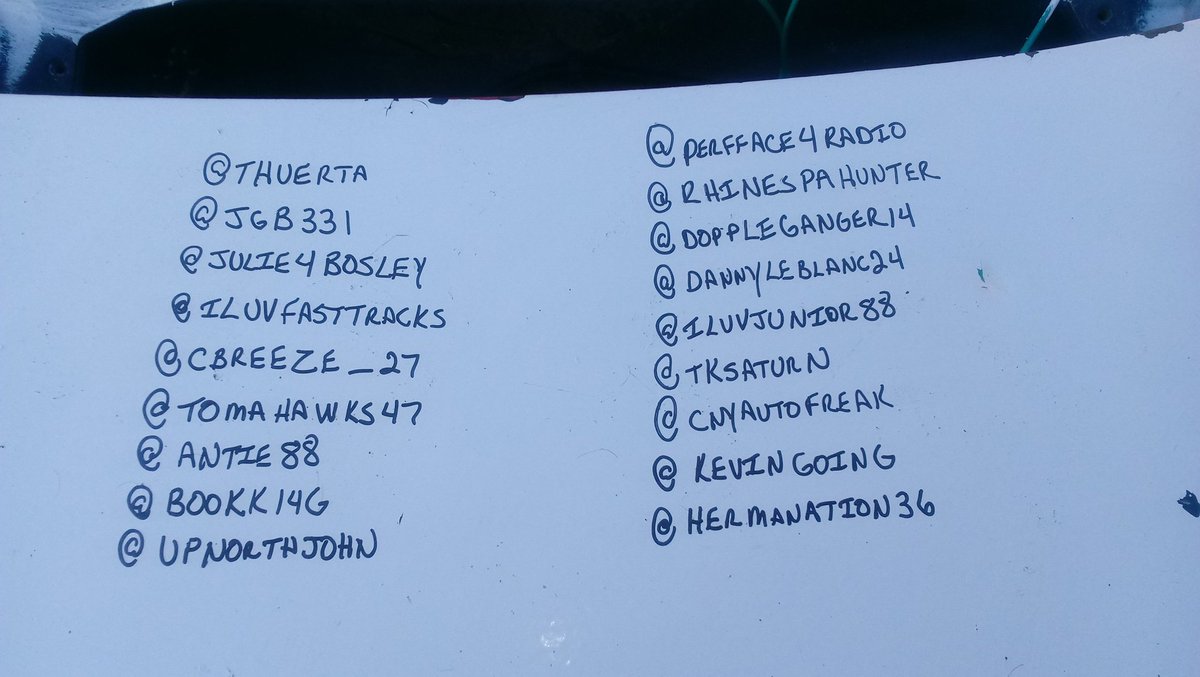 @THUERTA
@JGB331
@JULIE4BOSLEY
@ILUVFASTTRACKS
@CBREEZE_27
@TOMAHAWKS47
@ANTIE88
@BOOKK14G
@UPNORTHJOHN
@PERFFACE4RADIO
@RHINESPAHUNTER
@DOPPLEGANGER14
@DANNYLEBLANC24
@ILUVJUNIOR88
@TKSATURN
@CNYAUTOFREAK
@KEVINGOING
@HERMANATION36